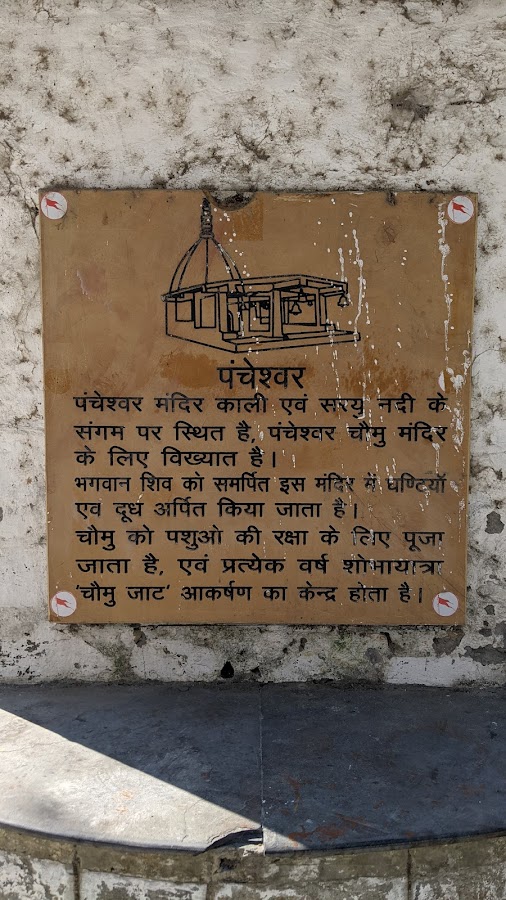 पंचेश्वर
पंचेश्वर मंदिर काली एवं सरयू नदी के
संगम पर स्थित है, पंचेश्वर चौमु मंदिर
के लिए विख्यात है।
भगवान शिव को समर्पित इस मंदिर में घण्टियॉ
एवं दूध अर्पित किया जाता है।
चौमु को पशुओ की रक्षा के लिए पूजा
जाता है, एवं प्रत्येक वर्ष शोभायात्रा
'चौमु जाट' आकर्षण का केन्द्र होता है।